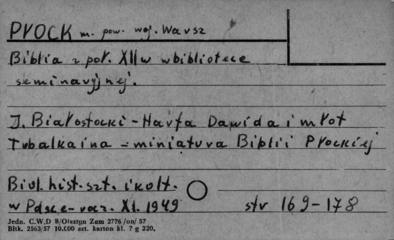 PŁOCK m. pow. woj. Warsz
Biblia z poł. XII w w bibliotece
seminaryjnej.
J. Białostocki - Harfa Dawida i młot
Tubalkaina - miniatura Biblii Płockiej
Biul. hist. szt. i kult.
w Polsce - rocz. XI. 1949 str 169-178
Jedn. C.W.D B/Olsztyn Zam 2776/on/57
Bltk. 2563/57 10.000 szt. karton kl. 7 g 220.